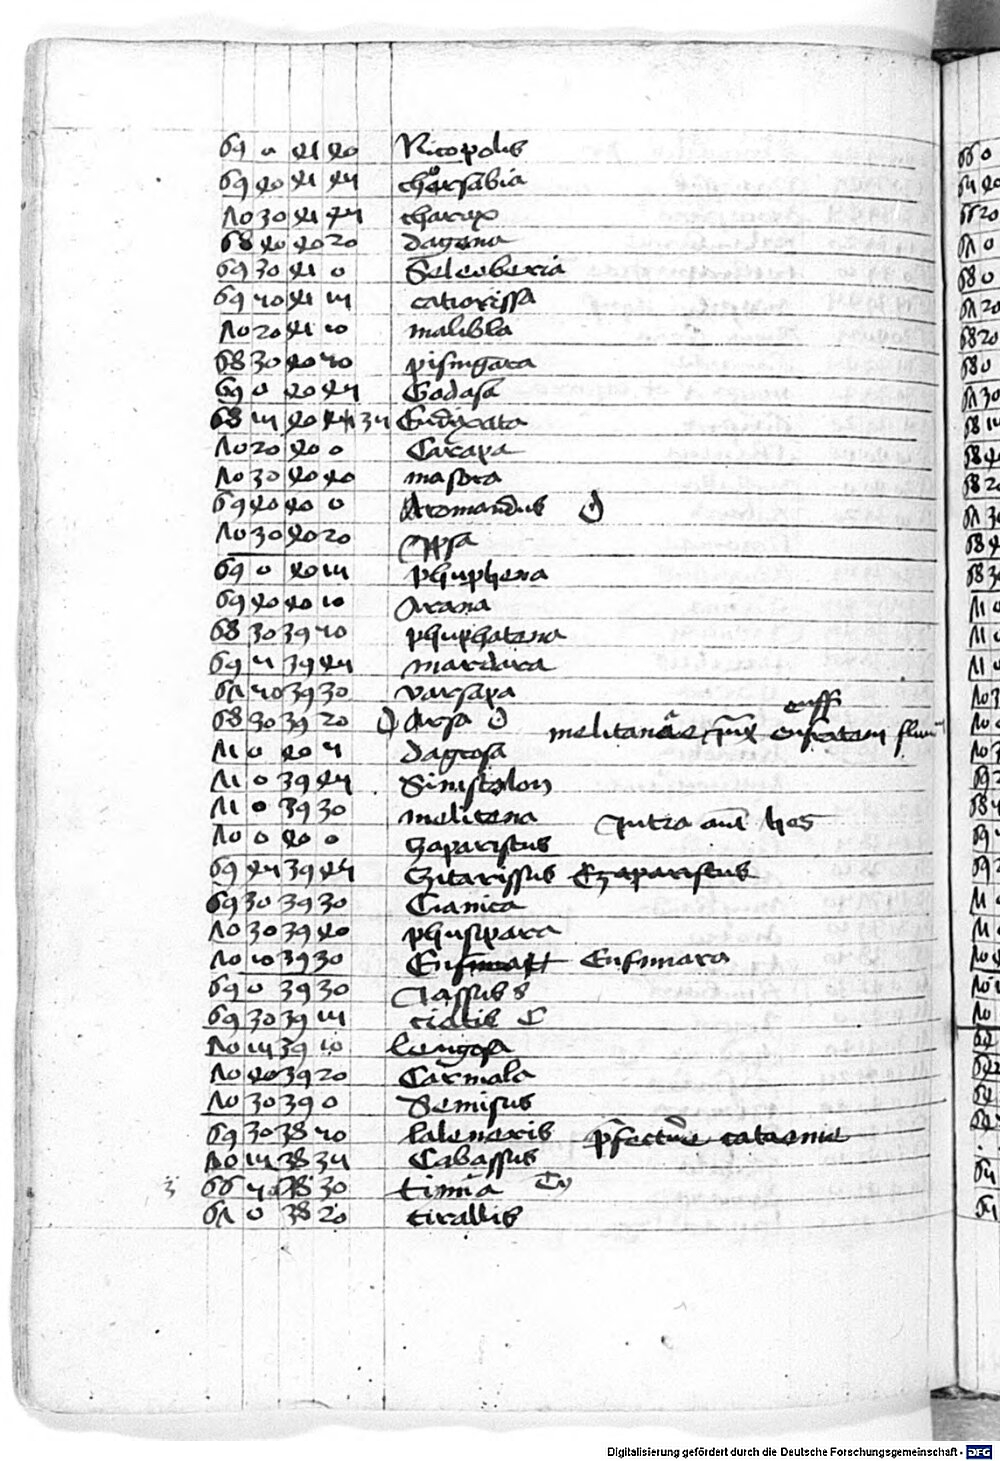 69 0 41 40 Nicopolis
69 40 41 45 chorsabia
70 30 41 45 charax
68 40 40 20 dagona
69 30 41 0 Seleoberia
69 50 41 15 catiorissa
70 20 41 10 malibla
68 30 40 50 pisingara
69 0 40 45 Godasa
68 15 40 35 Eudixata
70 20 40 0 Carapa
70 30 40 40 masora
69 40 40 0 Aromandus
70 30 40 20 Ispa
69 0 40 15 phuphena
69 40 40 10 Arana
68 30 39 50 phuphatena
69 5 39 45 mardara
67 50 39 30 varsapa
68 30 39 20 Arsa
melitane iux eufratem
euff
71 0 40 5 dagosa
71 0 39 45 Siniscolon
71 0 39 30 melitena intra aut hos
70 0 40 0 zaparistus
69 45 39 45 Zitarissus Ezaparistus
69 30 39 30 Cianica
70 30 39 40 phusipara
70 10 39 30 Eufimara
69 0 39 30 Ciassus
69 30 39 15 ciotis
70 15 39 10 leugosa
70 40 39 20 Carmala
70 30 39 0 Semisus
69 30 38 50 lalenexis prefecture cataonie
70 15 38 35 Cabassus
66 50 38 30 tinna
67 0 38 20 tirallis
Digitalisierung gefördert durch die Deutsche Forschungsgemeinschaft - DFG